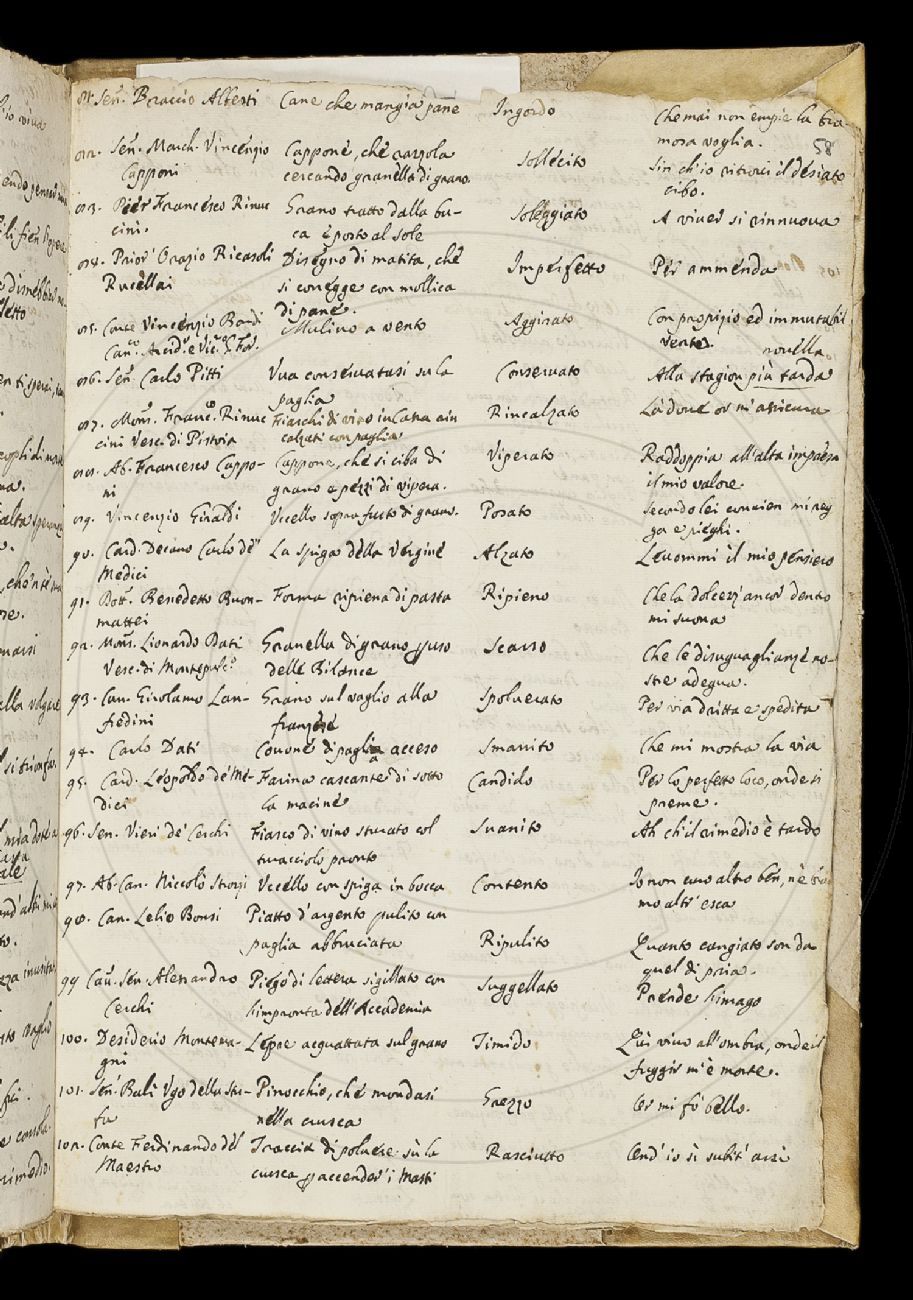 81. Sen.r Braccio Alberti Cane che mangia pane Ingordo Che mai non empie la bra-
mosa voglia.
58
82. Sen.r March. Vincenzio Cappone, che razzola Sollecito Sin ch'io ritrovi il desiato
Capponi cercando granella di grano. cibo.
83. Pier Francesco Rinuc Grano tratto dalla bu- Soleggiato A viver si rinnuova
cini. ca e posto al sole
84. Prior Orazio Ricasoli Disegno di matita, che Imperfetto Per ammenda
Rucellai si corregge con mollica
di pane.
85. Conte Vincenzio Bardi Mulino a vento Aggirato Con propizio ed immutabil
vento.
novella
86. Sen.r Carlo Pitti Uva conservatasi su la Conservato Alla stagion più tarda
paglia
87. Mons. Franc.o Rinuc Fiaschi di vino in Rincalzato Là dove or m'assicura
cini Vesc. di Pistoia calzati con paglia
88. Ab. Francesco Cappo- Cappone, che si ciba di Viperato Raddoppia all'alta impresa
ni grano a pezzi di vipera. il mio valore.
89. Vincenzio Giraldi Uccello sopra fusto di grano. Posato Secondo lei convien mi reg
ga e pieghi.
90. Card. Decano Carlo de' La spiga della Vergine Alzato Levommi il mio pensiero
Medici
91. Dott. Benedetto Buon- Forma ripiena di pasta Ripieno Che la dolcezz' ancor dentro
mattei mi suona
92. Mons. Lionardo Dati Granella di grano p uso Scarso Che le disuguaglianze no-
Vesc. di Montepul.o delle Bilance stre adegua.
93. Can. Girolamo Lan- Grano sul vaglio alla Spolverato Per via dritta e spedita
fredini franzese
94. Carlo Dati Covone di paglia acceso Smarrito Che mi mostra la via
95. Card. Leopoldo de' Me- Farina cascante di sotto Candido Per lo perfetto loco, onde si
dici la macine preme.
96. Sen. Vieri de' Cerchi Fiasco di vino sturato col Svanito Ah ch'il rimedio è tardo
turacciolo pronto
97. Ab. Can. Niccolò Strozzi Uccello con spiga in bocca Contento Io non curo altro ben, nè bra
mo altr' esca
98. Can. Lelio Bonsi Piatto d'argento pulito con
paglia abbruciata Ripulito Quanto cangiato son da
quel di pria.
99 Cav. Sen. Alessandro Piego di lettera sigillato con Suggellato Prende l'imago
Cerchi l'impronta dell'Accademia
100. Desiderio Montema- Lepre acquattata sul grano Timido Qui vivo all'ombra, onde il
gni fuggir m'è morte.
101. Sen.r Balì Ugo della Stu- Pinocchio, che mondasi Grezzo Or mi fò bello.
fa nella crusca
102. Conte Ferdinando del Traccia di polvere su la Rasciutto Ond' io sì subit' arsi
Maestro crusca p accender i Masti